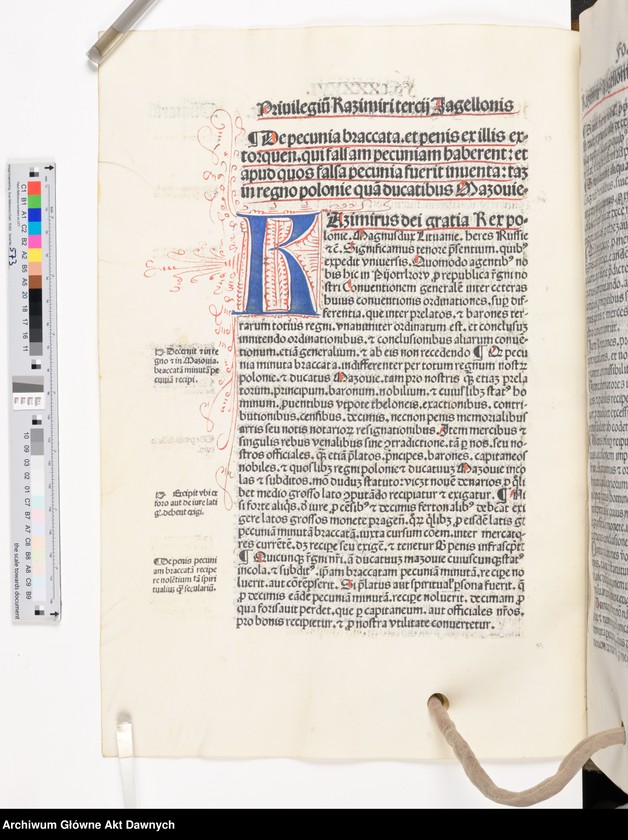 Privilegiũ Kazimiri tercij Jagellonis
¶ De pecunia braccata. et penis ex illis ex-
torquen. qui falsam pecuniam haberent: et
apud quos falsa pecunia fuerit inventa: taȝ
in regno polonie quã ducatibus Mazouie.
KAzimirus dei gratia Rex po-
lonie. Magnus dux Lituanie. heres Russie
⁊c̃. Significamus tenore p̃sentium. quibꝰ
expedit vniuersis. Quomodo agentibꝰ no
bis hic in Pijotrkow. ꝓ republica r̃gni no
stri Conuentionem generalẽ inter ceteras
huius conuentionis ordinationes. sup dif-
ferentia. que inter prelatos. ⁊ barones ter-
rarum totius regni. vnanimiter ordinatum est. et conclusuȝ
innitendo ordinationibus. ⁊ conclusionibus aliarum conuẽ-
tionum. etiã generalium. ⁊ ab eis non recedendo ¶ Qꝫ pecu
nia minuta braccata. indifferenter per totum regnum nostrȝ
polonie. ⁊ ducatus Mazouie. tam pro nostris qꝫ etiaȝ prela
torum. principum. baronum. nobiliũ. ⁊ cuiuslibȝ statꝰ ho
minum. ꝓuentibus vtpote theloneis. exactionibus. contri
butionibus. censibus. decimis. necnon penis memorialibus
arris seu notis notarioȝ. resignationibus. Item mercibus ⁊
singulis rebus venalibus sine ɔtradictione. tã ꝑ nos. seu no-
stros officiales. qꝫ etiã p̃latos. p̃ncipes. barones. capitaneos
nobiles. ⁊ quoslibȝ regni polonie ⁊ ducatuuȝ Mazouie inco
las ⁊ subditos. mõ duduȝ statuto videlicet nouẽ denarios. ꝓ qͥli
bet medio grosso lato ɔputãdo recipiatur ⁊ exigatur. ¶ Ni
si forte aliqs. ð iure. ꝓ cẽsibꝰ ⁊ decimis fertonalibꝰ debeãt exi
gere latos grossos monete pragen̄.
pecuniã minutã braccatã. iuxta cursum cõem. inter mercatq̃
res currẽtẽ. dȝ recipe seu exigẽ. ⁊ tenetur sb penis infrascptis
¶ Quicunqꝫ aũt r̃gni nr̃i. aut ducatuuȝ mazouie cuiuscunqꝫ statꝰ
incola. ⁊ subditꝰ. ip̃am braccatam pecuniã minutã. recipe no
luerit. aut cõtẽpserit. Si p̃latus aut spiritualꝭ psona fuerit. qͥ
ꝓ decimis eãdẽ pecuniã minutã. recipe noluerit. decimam ꝓ
qua forsauit perdet. que ꝑ capitaneum. aut officiales nr̃os.
pro bonis recipietur. ⁊ ꝓ nostra vtilitate conuertetur.
Decernit vt in re
gno ⁊ in Mazouia.
braccatã minutã pe
cuniã recipi.
Excipit vbi ex
foro aut de iure lati
gꝛ. debent exigi.
¶ De penis pecuni
am braccatã recipe
re nolẽtium tã spiri
tualius qꝫ seculariũ.
573
the scale towards document
Archiwum Główne Akt Dawnych